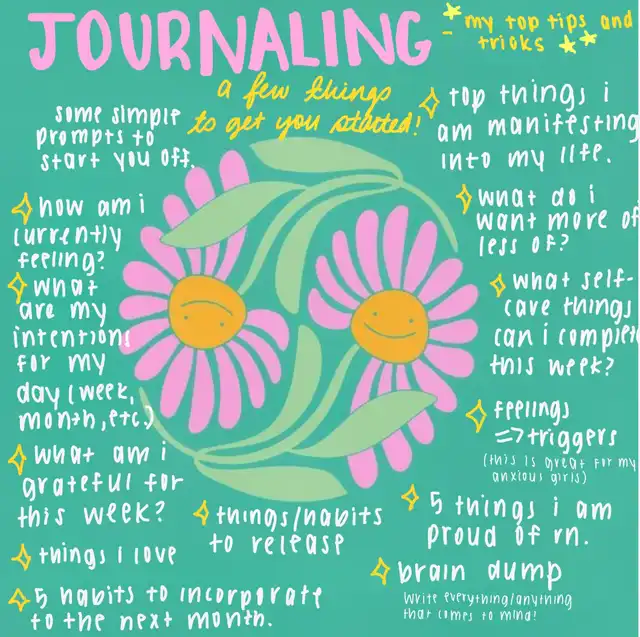 JOURNALING
- my top tips and
tricks
a few things
to get you started!
some simple
prompts to
start you off.
how am i
currently
feeling?
what
are my
intentions
for my
day (week,
month, etc.)
what am i
grateful for
this week?
things I love
5 habits to incorporate
to the next month.
things/habits
to release
top things i
am manifesting
into my life.
what do i
want more of
less of?
what self-
care things
can i complete
this week?
feelings
=> triggers
(this is great for my
anxious girls)
5 things i am
proud of rn.
brain dump
Write everything/anything
that comes to mind!